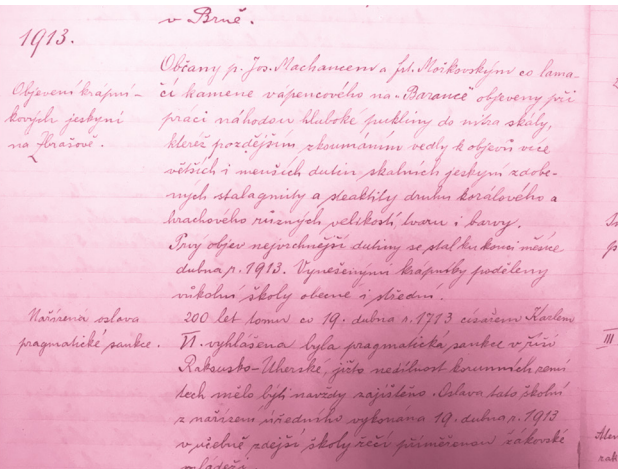 v Brně.
1913.
Objevení krápní-
kových jeskyní
na Zbrašově.
Občany p. Jos. Machancem a frt. Mořkovským co lama-
či kamene vápencového na „Barancě" objeveny při
práci náhodou hluboké pukliny do nitra skály,
kteréž pozdějším zkoumáním vedly k objevu více
větších i menších dutin skalních jeskyní zdobe-
ných stalagmity a steaktity druhu korálového a
hrachového různých velikostí, tvaru i barvy.
Prvý objev nejvrchnější dutiny se stal ku konci měsíce
dubna r. 1913. Vynešenými krápníky poděleny
vůkolní školy obecné i střední.
Nařízena oslava
pragmatické sankce.
200 let tomu co 19. dubna r. 1713 císařem Karlem
VI. vyhlášena byla pragmatická sankce v říši
Rakousko-Uherské, jížto nedílnost korunních zemí
těch mělo býti navždy zajištěno. Oslava tato školní
z nařízení úředního vykonána 19. dubna r. 1913
v učebně zdejší školy řečí přiměřenou žákovské
mládeži.
III